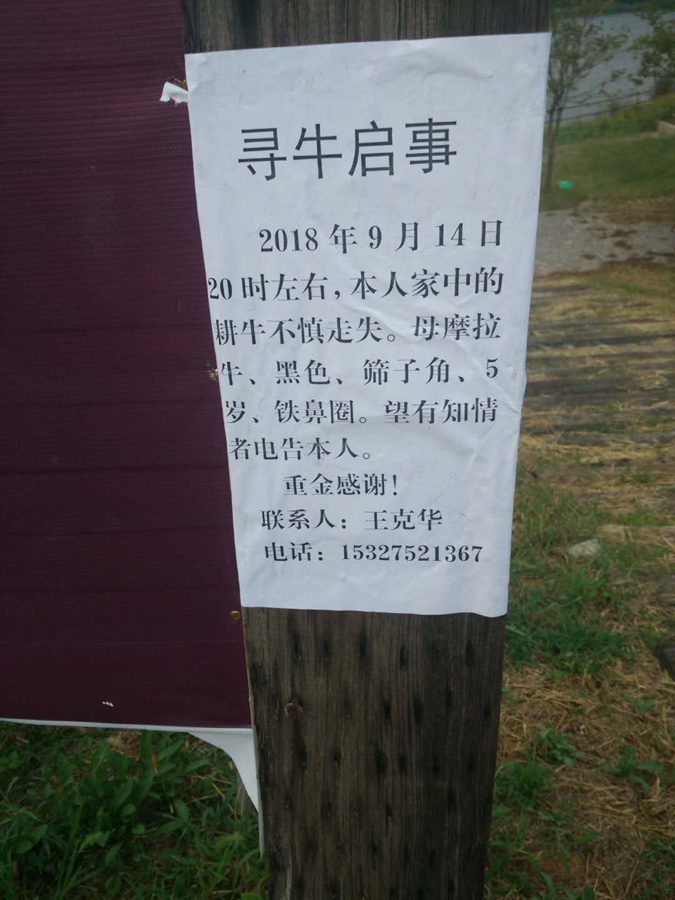 寻牛启事
2018年9月14日
20时左右,本人家中的
耕牛不慎走失。母摩拉
牛、黑色、筛子角、5
岁、铁鼻圈。望有知情
者电告本人。
重金感谢!
联系人:王克华
电话:15327521367